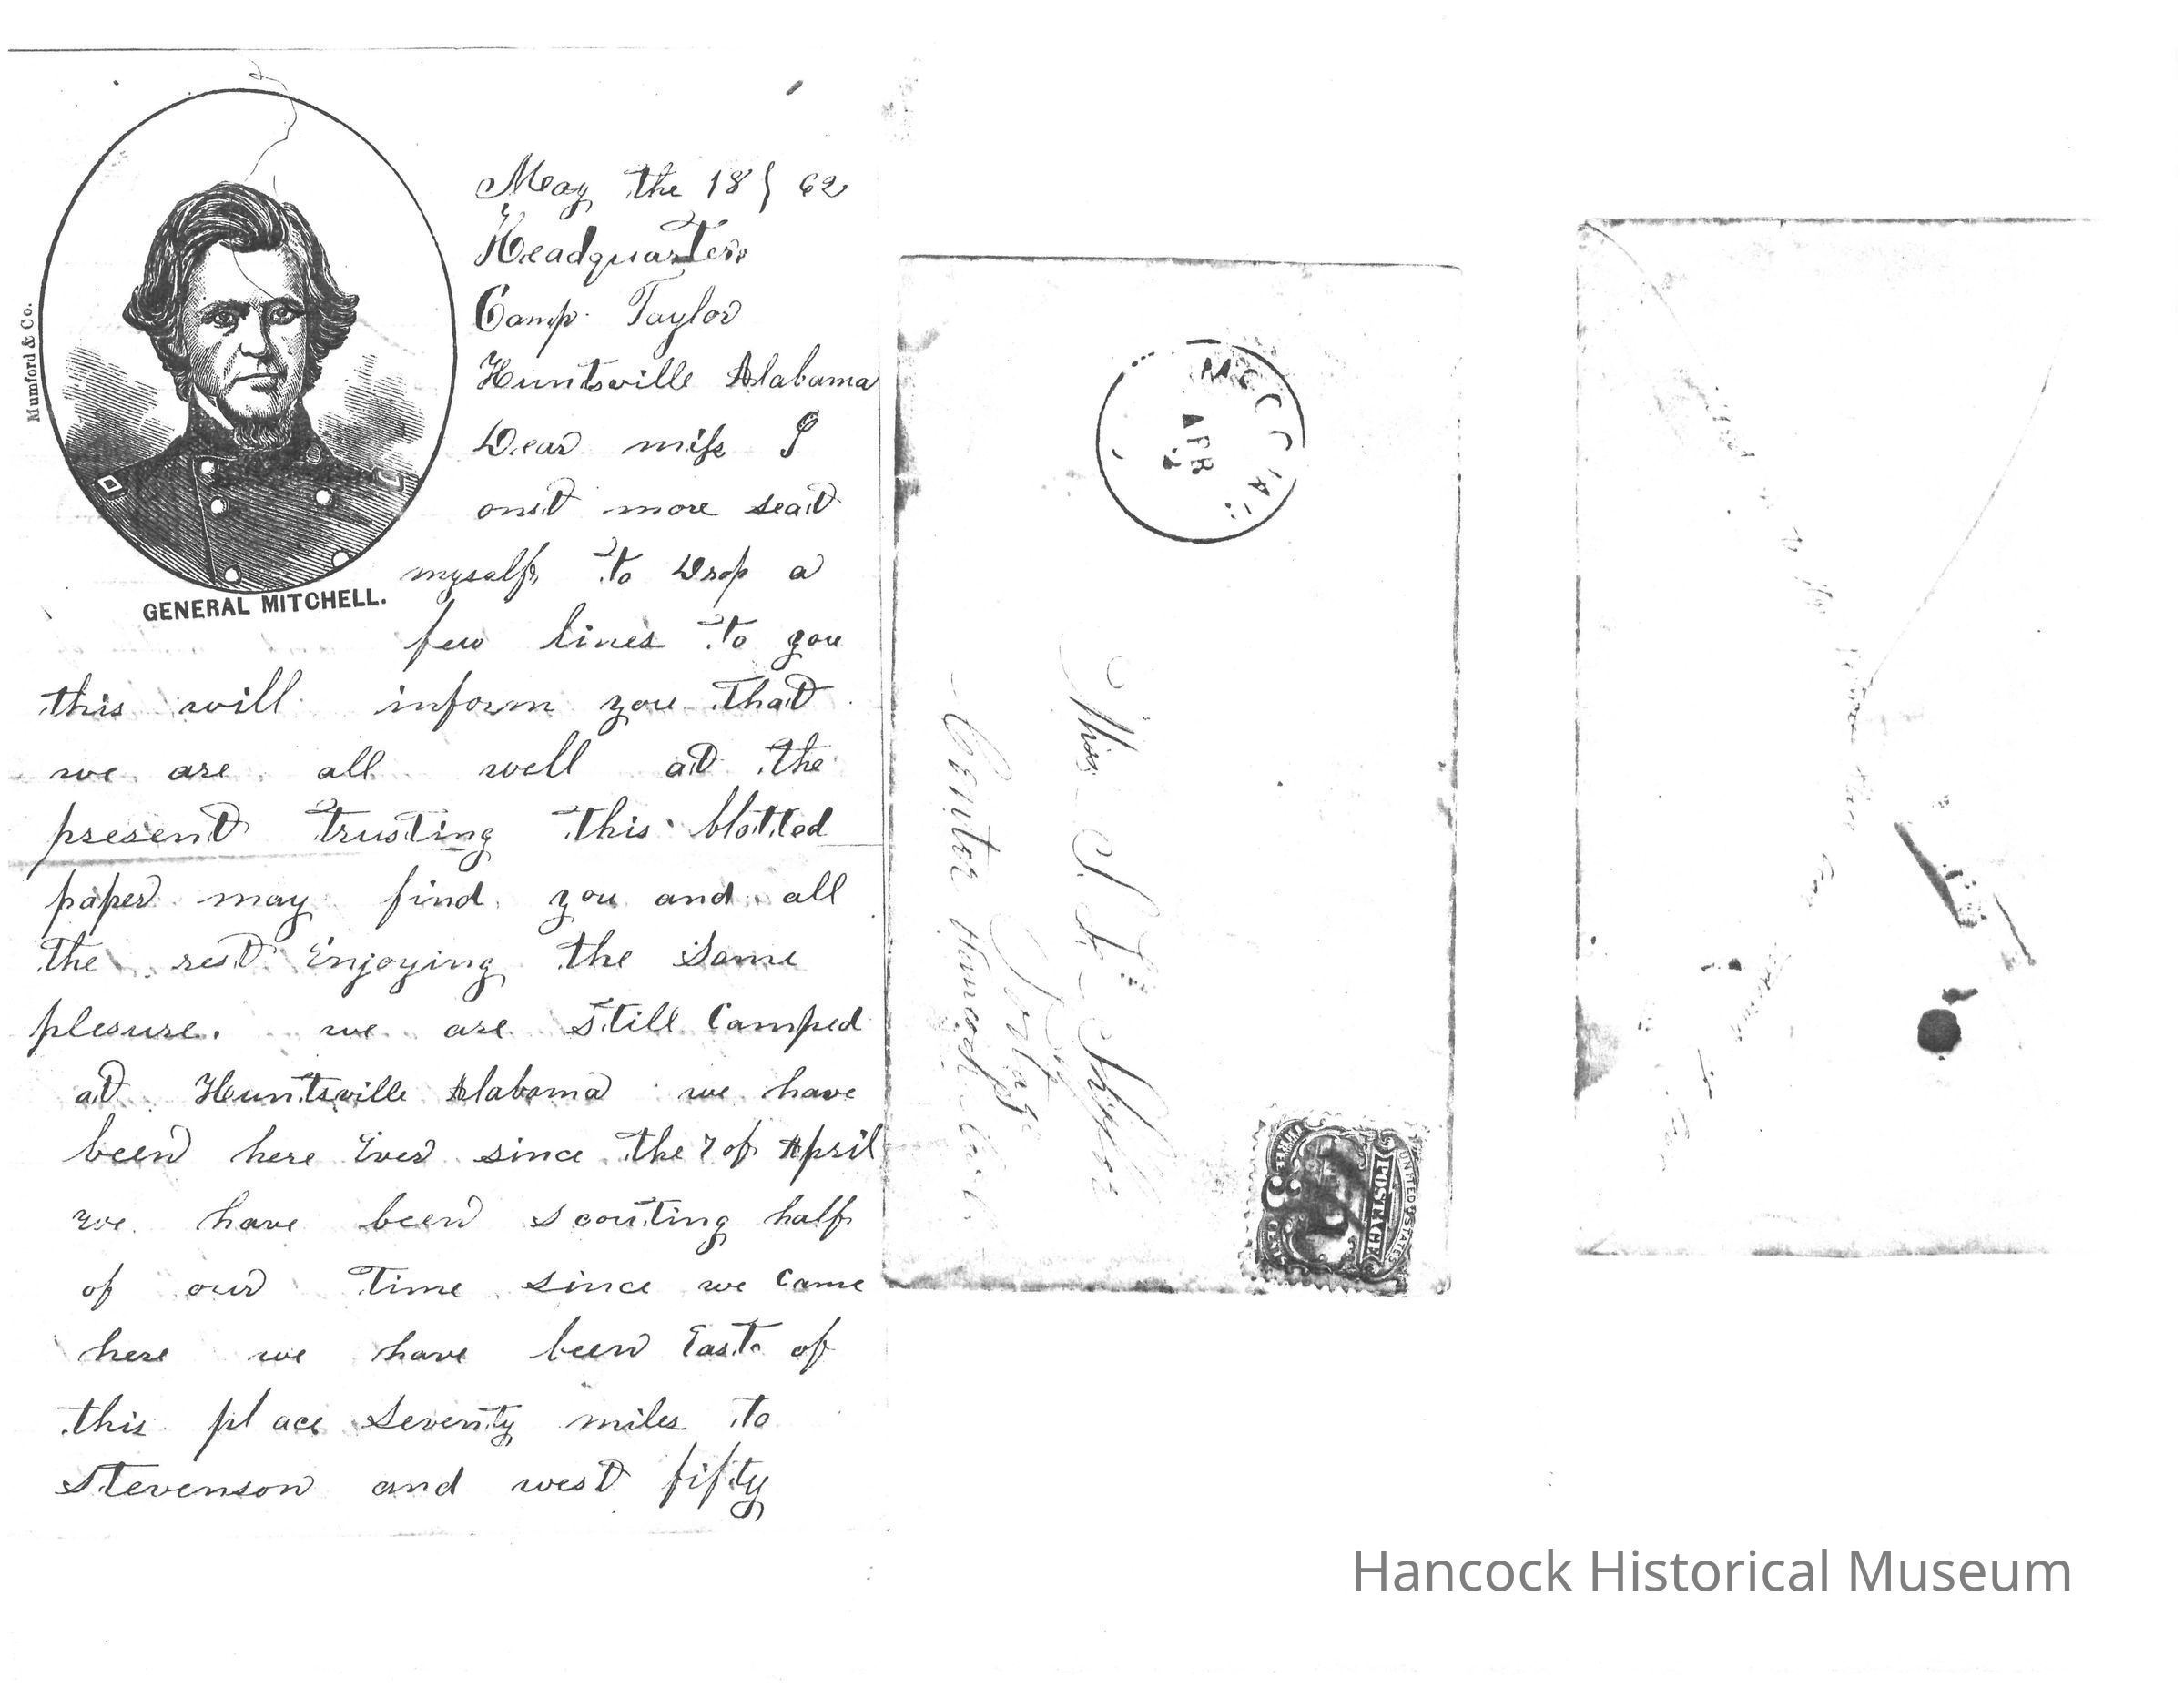 Mumford & Co.
GENERAL MITCHELL.
May the 18 / 62
Headquarters
Camp Taylor
Huntsville Alabama
Dear miss I
onst more seat
myself to Drop a
few lines to you
this will inform you that
we are all well at the
present trusting this blotted
paper may find you and all
the rest Enjoying the Same
plesure. we are still Camped
at Huntsville Alabama we have
been here Ever since the 7 of April
we have been scouting half
of our time since we came
here we have been East of
this place Seventy miles to
Stevenson and west fifty
APR
Miss S
Center Hancock Co
UNITED STATES
POSTAGE
3
Hancock Historical Museum